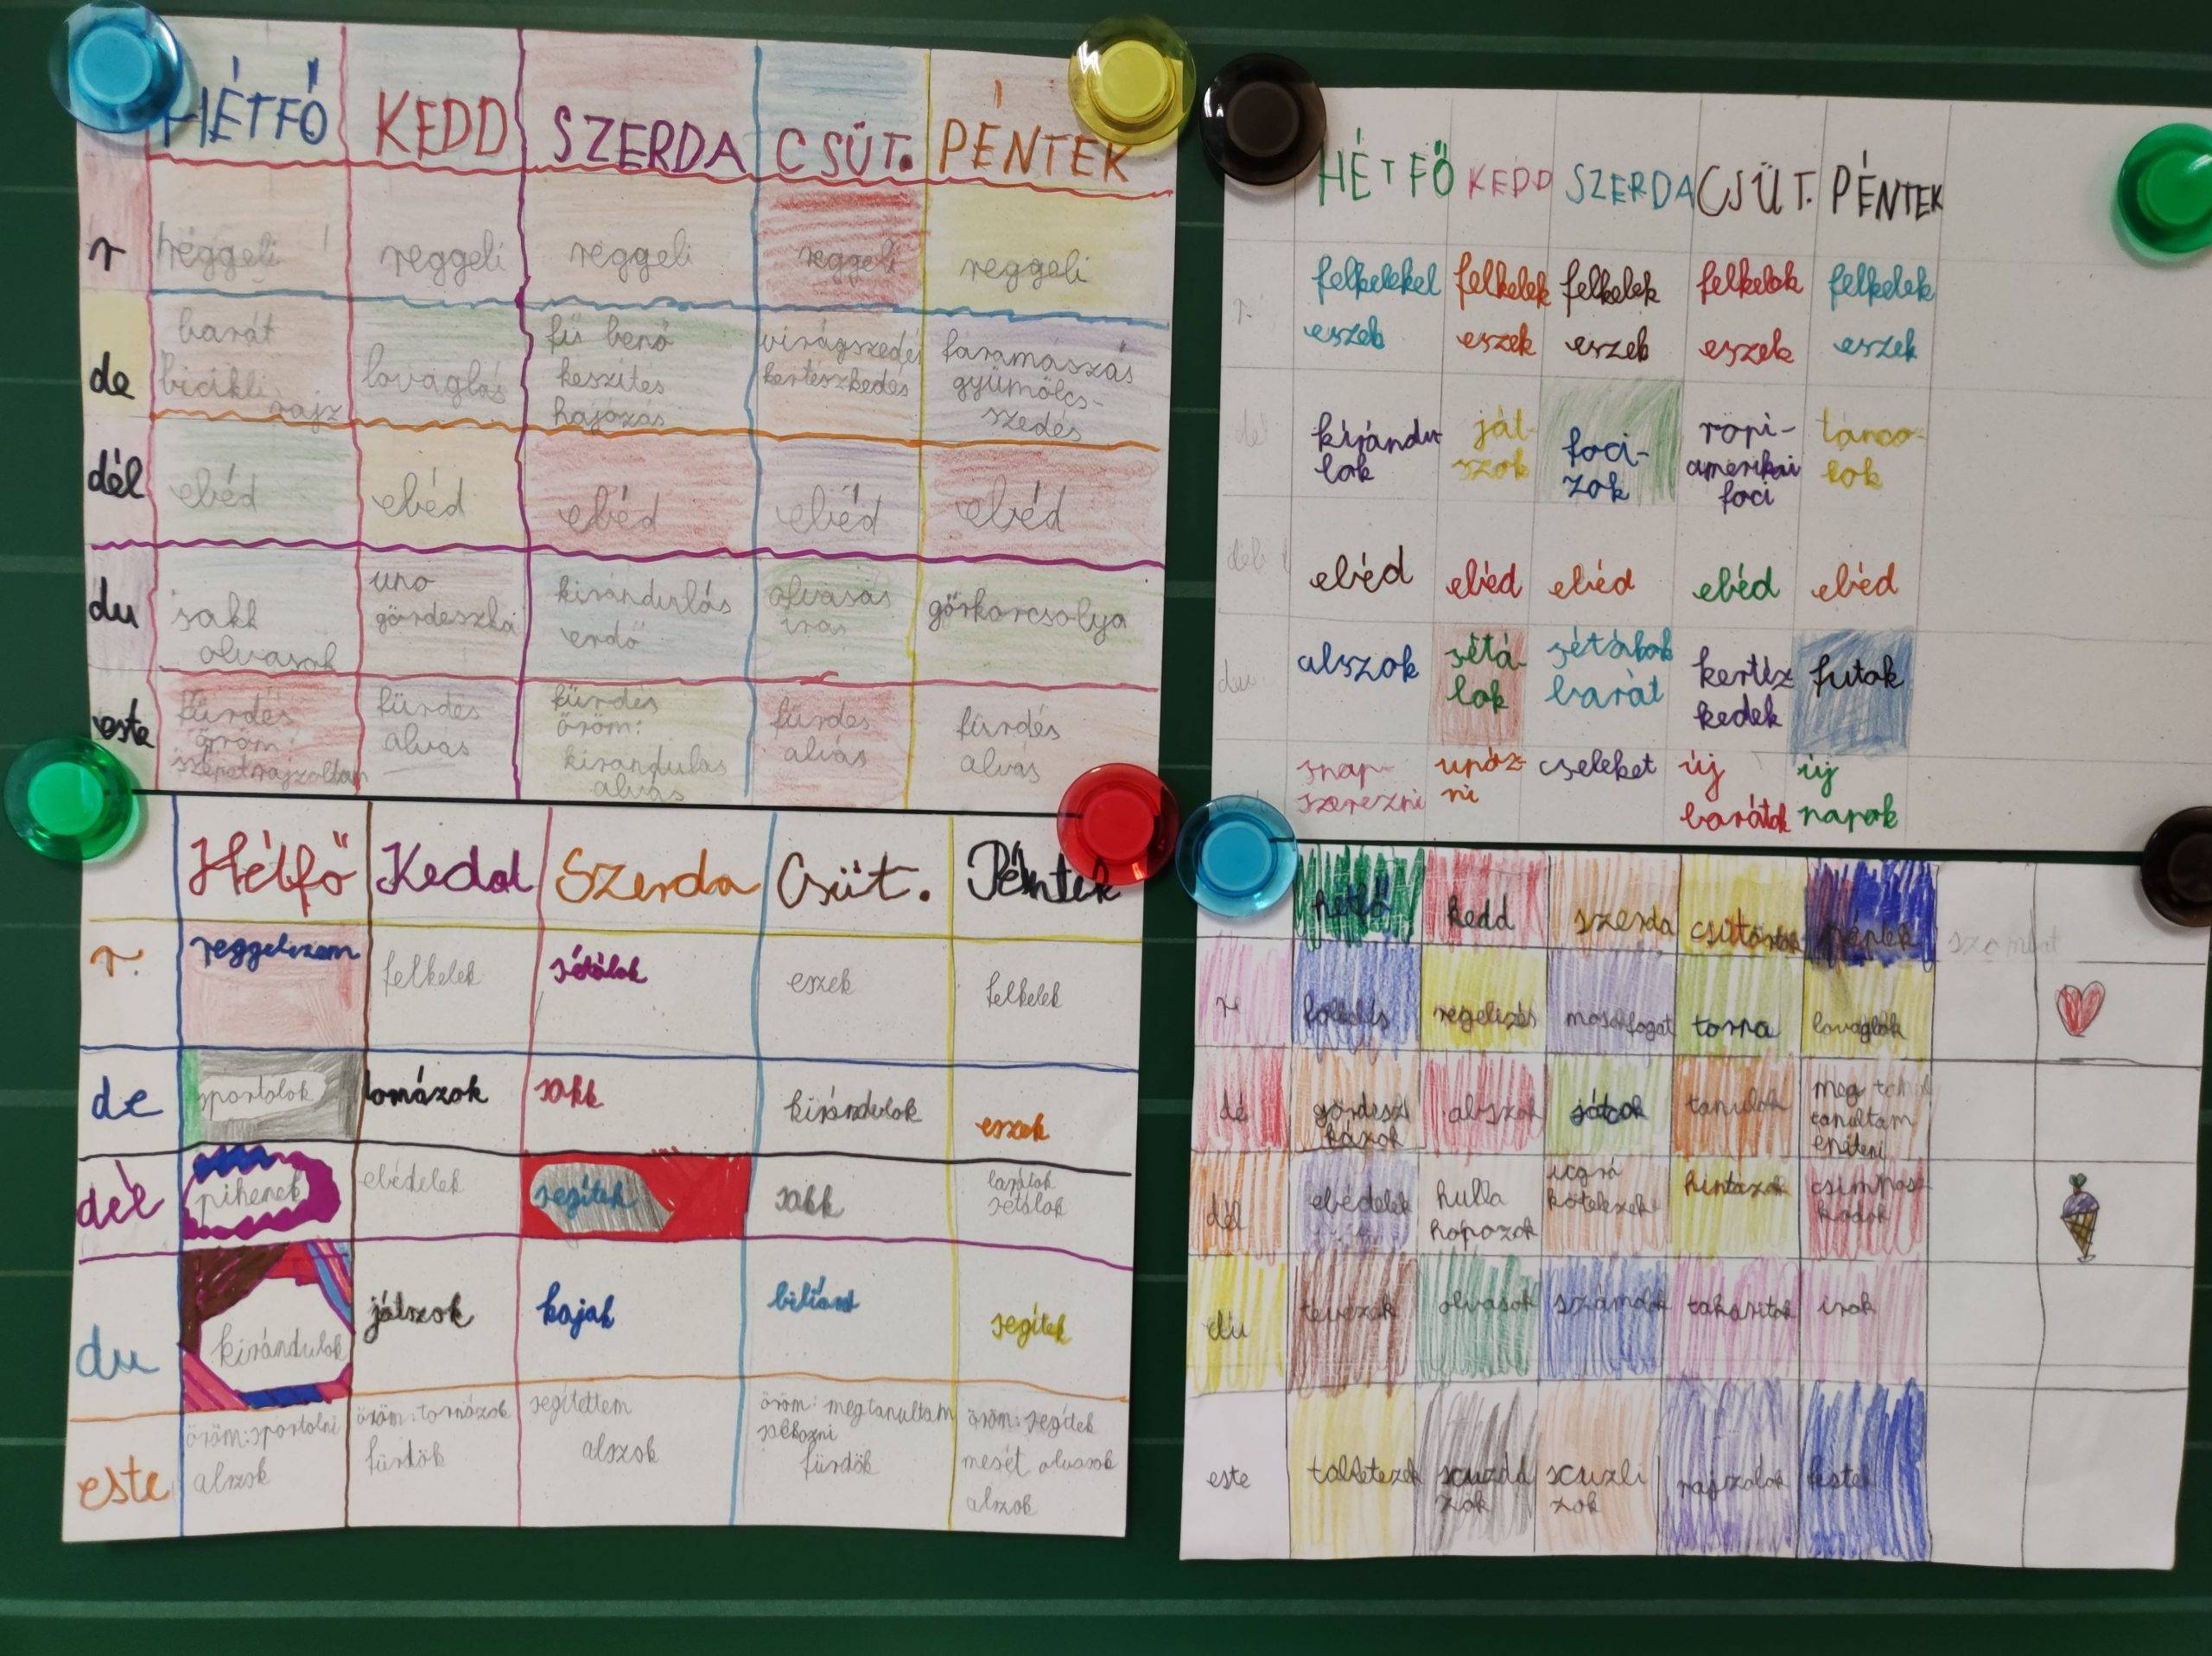 HÉTFŐ KEDD SZERDA CSÜT. PÉNTEK
r reggeli reggeli reggeli reggeli reggeli
de
barát
bicikli
rajz
lovaglás
készítés
hajózás
virágszedés
kertészkedés
faramászás
gyümölcs-
szedés
dél ebéd ebéd ebéd ebéd ebéd
du
sakk
olvasok
uno
gördeszka
kirándulás
erdő
olvasás
írás
görkorcsolya
este
fürdés
öröm:
szépet rajzoltam
fürdés
alvás
fürdés
öröm:
kirándulás
alvás
fürdés
alvás
fürdés
alvás
HÉTFŐ KEDD SZERDA CSÜT. PÉNTEK
r.
felkelekel
eszek
felkelek
eszek
felkelek
eszek
felkelek
eszek
felkelek
eszek
de
kirándu
lok
ját-
szok
foci-
zok
röpi-
amerikai
foci
tánco-
lok
ebéd ebéd ebéd ebéd ebéd
du
alszok
sétá-
lok
sétálok
barát
kertéz
kedek
futok
snap-
szerezni
unóz-
ni
cseleket
új
barátok
új
napok
Hétfő Kedd Szerda Csüt. Péntek
r. reggelizem felkelek sétálok eszek felkelek
de sportolok tornázok sakk kirándulok eszek
dél pihenek ebédelek segítek sakk
barátok
sétálok
du kirándulok játszok kajak biliárd segítek
este
öröm:sportolni
alszok
öröm:tornázok
fürdök
segítettem
alszok
öröm: megtanultam
sakkozni
fürdök
öröm: segítek
mesét olvasok
alszok
hétfő kedd szerda csütörtök péntek szombat
r
regelizés
mosok fogat
torna
lovaglok
dé
gördesz
kázok
alszok
játok
tanulok
meg tanul
tanultam
dél
ebédelek
hulla
hopozok
ugró
kötelezek
hintázok
csimpasz
kodok
du
olvasok
számolok
takarítok
írok
este
rajzolok
festek